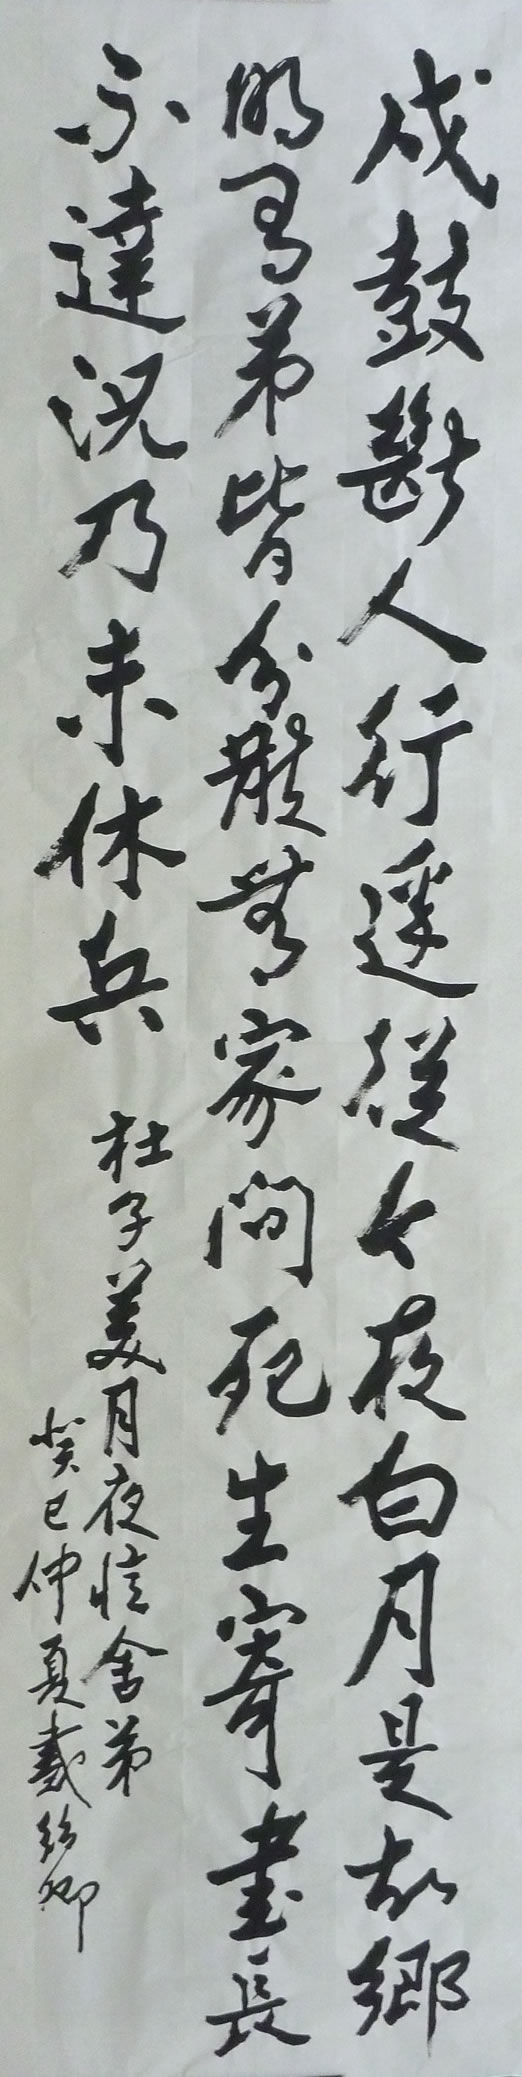 戍鼓斷人行從今夜白月是故鄉
明有弟皆分散無家問死生寄書長
不達況乃未休兵
杜子美月夜憶舍弟
癸巳仲夏戴卿